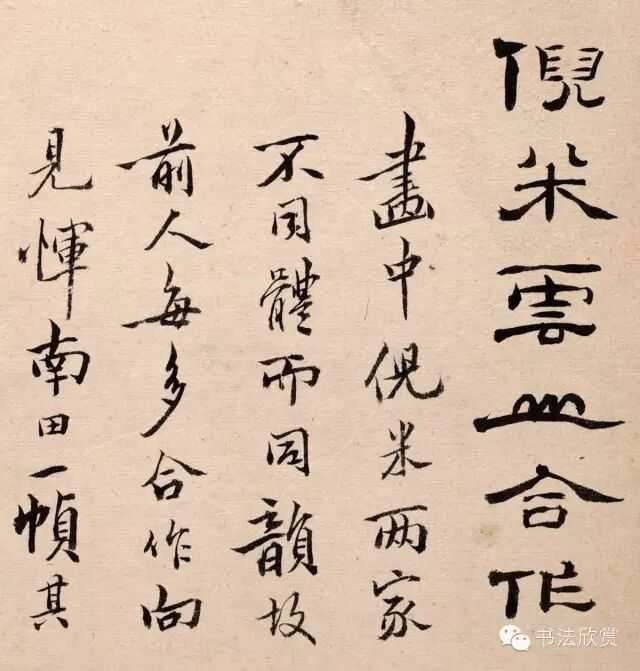 倪米雲山合作
畫中倪米两家
不同體而同韻故
前人每多合作向
見惲南田一幀其
书法欣赏